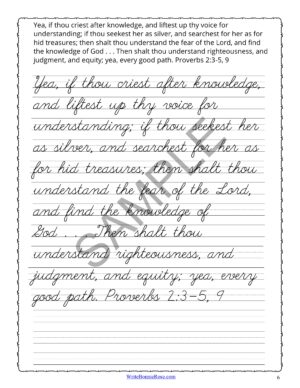 Yea, if thou criest after knowledge, and liftest up thy voice for
understanding; if thou seekest her as silver, and searchest for her as for
hid treasures; then shalt thou understand the fear of the Lord, and find
the knowledge of God . . . Then shalt thou understand righteousness, and
judgment, and equity; yea, every good path. Proverbs 2:3-5, 9
Yea, if thou criest after knowledge,
and liftest up thy voice for
understanding; if thou seekest her
as silver, and searchest for her as
for hid treasures; then shalt thou
understand the fear of the Lord,
and find the knowledge of
God . . . Then shalt thou
understand righteousness, and
judgment, and equity; yea, every
good path. Proverbs 2:3-5, 9
SAMPLE
WriteBonnieRose.com
6